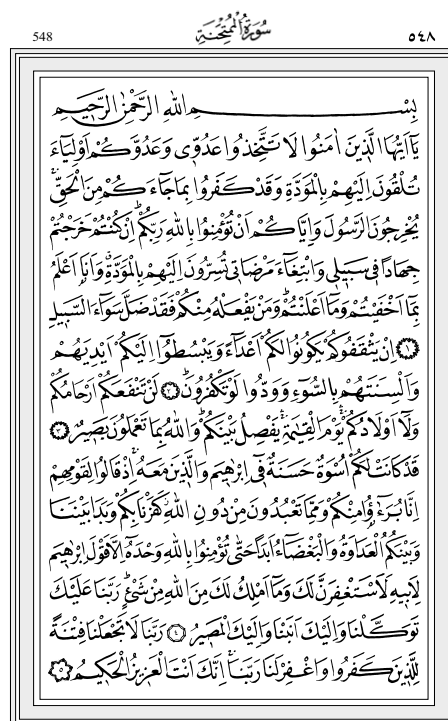 548 سُورَةُ الْمُمْتَحِنَةِ ٥٤٨
بِسْمِ اللهِ الرَّحْمٰنِ الرَّحِيمِ
يَٓا اَيُّهَا الَّذِينَ اٰمَنُوا لَا تَتَّخِذُوا عَدُوِّى وَعَدُوَّكُمْ اَوْلِيَٓاءَ
تُلْقُونَ اِلَيْهِمْ بِالْمَوَدَّةِ وَقَدْ كَفَرُوا بِمَا جَٓاءَ كُمْ مِنَ الْحَقِّۚ
يُخْرِجُونَ الرَّسُولَ وَاِيَّا كُمْ اَنْ تُؤْمِنُوا بِاللهِ رَبِّكُمْۜ اِنْ كُنْتُمْ خَرَجْتُمْ
جِهَادًا فِى سَبِيلِى وَابْتِغَٓاءَ مَرْضَاتِى تُسِرُّونَ اِلَيْهِمْ بِالْمَوَدَّةِ وَاَنَا۬ اَعْلَمُ
بِمَٓا اَخْفَيْتُمْ وَمَٓا اَعْلَنْتُمْۜ وَمَنْ يَفْعَلْهُ مِنْكُمْ فَقَدْ ضَلَّ سَوَٓاءَ السَّبِيلِ
﴿١﴾ اِنْ يَثْقَفُوكُمْ يَكُونُوا لَكُمْ اَعْدَٓاءً وَيَبْسُطُٓوا اِلَيْكُمْ اَيْدِيَهُمْ
وَاَلْسِنَتَهُمْ بِالسُّٓوءِ وَوَدُّوا لَوْ تَكْفُرُونَۜ ﴿٢﴾ لَنْ تَنْفَعَكُمْ اَرْحَامُكُمْ
وَلَٓا اَوْلَادُكُمْۚ يَوْمَ الْقِيٰمَةِۚ يَفْصِلُ بَيْنَكُمْۜ وَاللهُ بِمَا تَعْمَلُونَ بَصِيرٌ ﴿٣﴾
قَدْ كَانَتْ لَكُمْ اُسْوَةٌ حَسَنَةٌ فِٓى اِبْرٰهِيمَ وَالَّذِينَ مَعَهُۚ اِذْ قَالُوا لِقَوْمِهِمْ
اِنَّا بُرَءٰٓؤُ۬ا مِنْكُمْ وَمِمَّا تَعْبُدُونَ مِنْ دُونِ اللهِۘ كَفَرْنَا بِكُمْ وَبَدَا بَيْنَنَا
وَبَيْنَكُمُ الْعَدَاوَةُ وَالْبَغْضَٓاءُ اَبَدًا حَتّٰى تُؤْمِنُوا بِاللهِ وَحْدَهُٓ اِلَّا قَوْلَ اِبْرٰهِيمَ
لِاَبِيهِ لَاَسْتَغْفِرَنَّ لَكَ وَمَٓا اَمْلِكُ لَكَ مِنَ اللهِ مِنْ شَىْءٍۜ رَبَّنَا عَلَيْكَ
تَوَكَّلْنَا وَاِلَيْكَ اَنَبْنَا وَاِلَيْكَ الْمَصِيرُ ﴿٤﴾ رَبَّنَا لَا تَجْعَلْنَا فِتْنَةً
لِلَّذِينَ كَفَرُوا وَاغْفِرْ لَنَا رَبَّنَاۚ اِنَّكَ اَنْتَ الْعَزِيزُ الْحَكِيمُ ﴿٥﴾